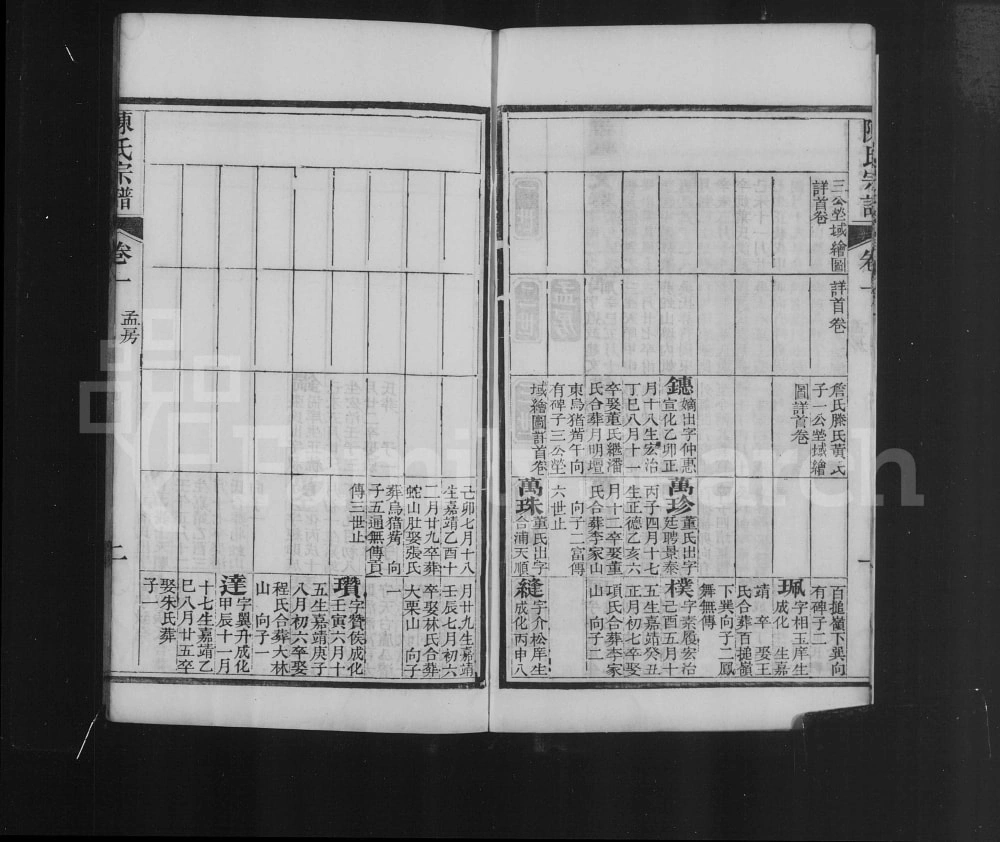 陳氏宗譜
卷一
一
三公塋域繪圖
詳首卷
詳首卷
詹氏滕氏黃氏
子一公塋域繪
圖詳首卷
鏸嫡出字仲惠
宣化乙卯正
月十八生宏治
丁巳八月十一
卒娶董氏繼潘
氏合葬月明壇
東烏猪崗午向
有碑子三公塋
域繪圖詳首卷
萬珍董氏出字
廷聘景泰
丙子四月十七
生正德乙亥六
月十二卒娶董
氏合葬李家山
向子二富傳
六世止
萬珠董氏出字
合浦天順
百搥嶺下巽向
有碑子二
珮字相玉庠生
成化 生嘉
靖 卒 娶王
氏合葬百搥嶺
下巽向子二鳳
舞無傳
樸字素履宏治
己酉五月十
五生嘉靖癸丑
正月初七卒娶
項氏合葬李家
山 向子二
縫字介松庠生
成化丙申八
己卯七月十八
生嘉靖乙酉十
二月廿九卒葬
蛇山肚娶張氏
葬烏猎崗 向
子五通無傳貢
傳三世止
月廿九生嘉靖
壬辰七月初六
卒娶林氏合葬
大栗山 向子
一
瓚字贊侯成化
壬寅六月十
五生嘉靖庚子
八月初六卒娶
程氏合葬大林
山 向子一
達字翼升成化
甲辰十一月
十七生嘉靖乙
巳八月廿五卒
娶朱氏葬
子一
陳氏宗譜
卷一
孟房
二